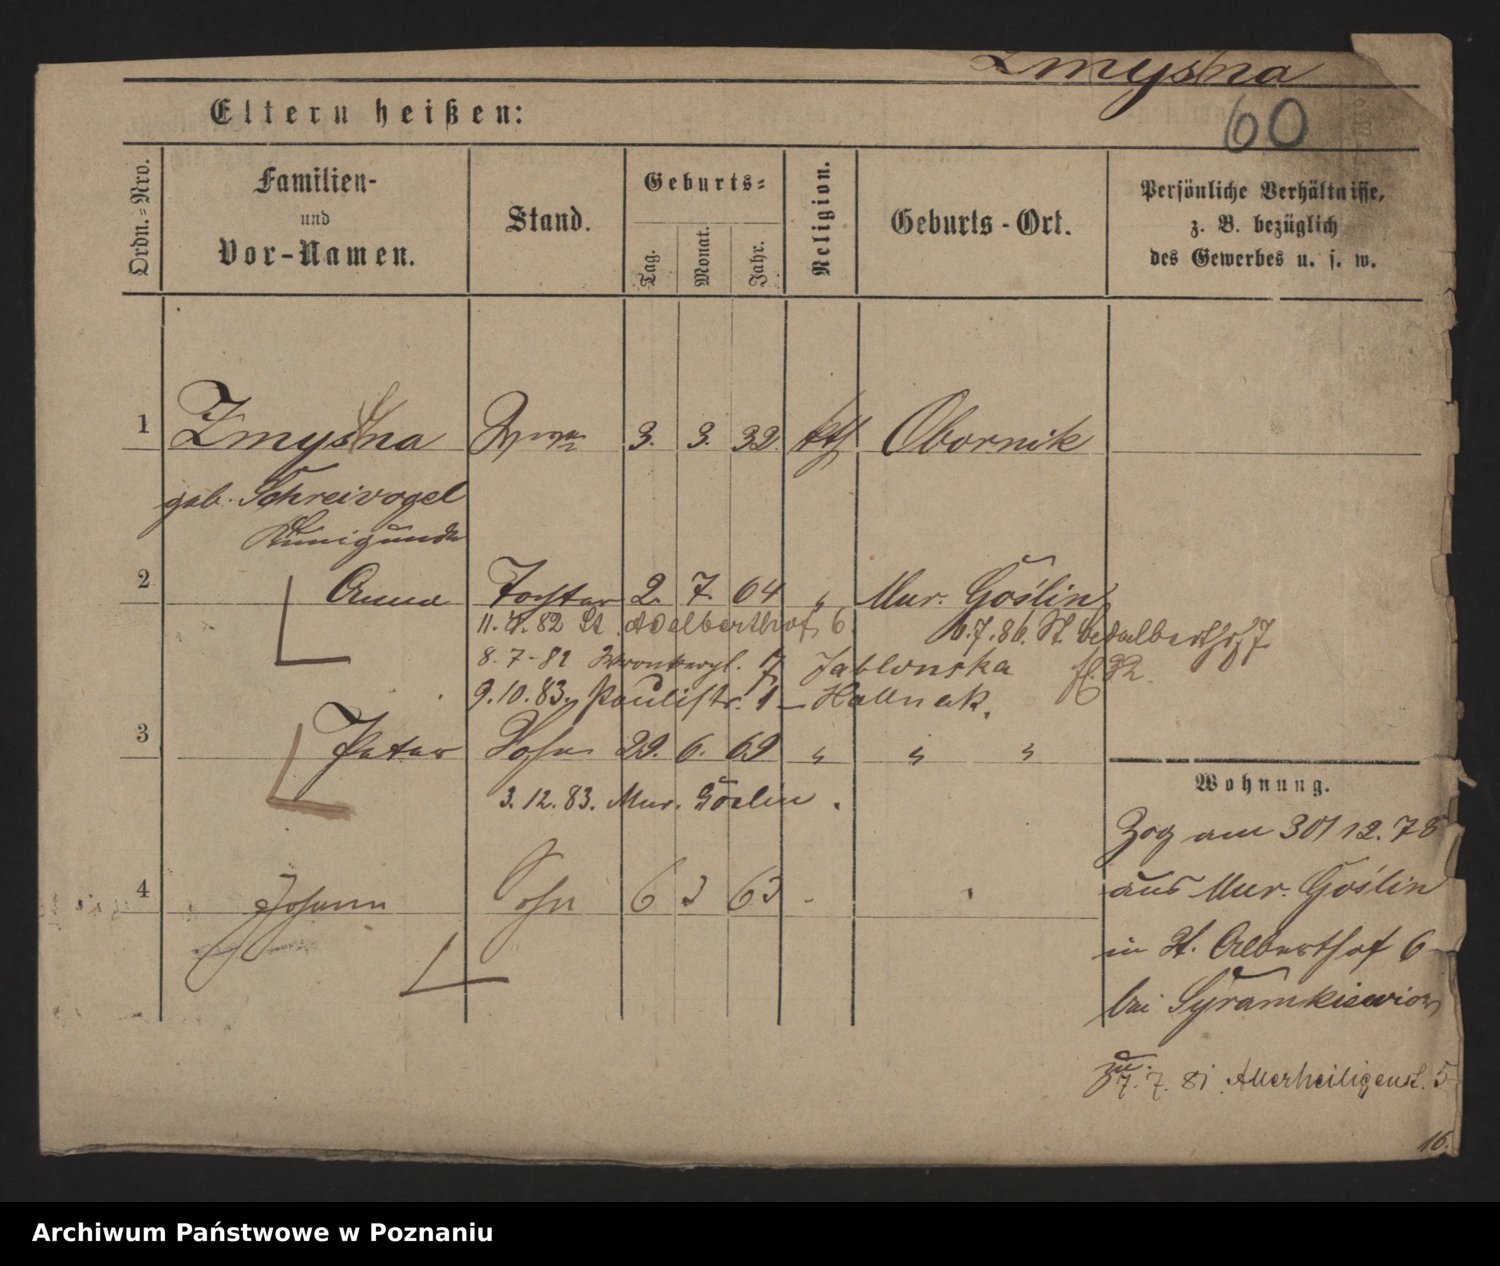 Zmysłna
60
Eltern heißen:
Ordn.=Nro.
Familien-
und
Vor-Namen.
Stand.
Geburts=
Tag.
Monat.
Jahr.
Religion.
Geburts-Ort.
Persönliche Verhältnisse,
z. B. bezüglich
des Gewerbes u. s. w.
1 Zmysłna 3. 3. 32. kth Obornik
geb. Schreivogel
Kunigunde
2 Anna Tochter 2. 7. 64 " Mur. Goślin
11. 4. 82 St. Adelberthof 6. 6.7.86. St. Adalberthof 7
8. 7 - 82 Wronkerpl. 7 Jablonska
9. 10. 83. Paulistr. 1 - Hallnak.
3 Peter Sohn 29. 6. 69 " " "
3. 12. 83. Mur. Goslin.
4 Johann Sohn 6 3 63
Wohnung.
Zog am 30/12.78
aus Mur. Goślin
in St. Alberthof 6
bei Szramkiewicz
7. 7. 81. Allerheiligenst. 5
16.
Archiwum Państwowe w Poznaniu